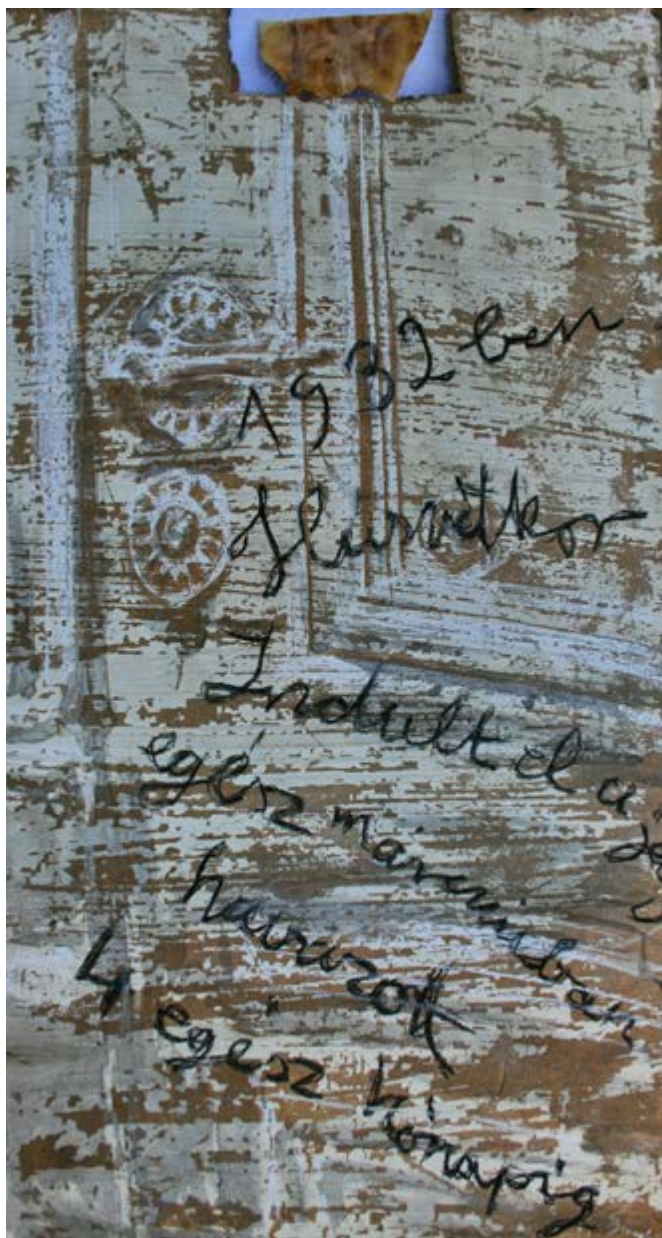 1932 ben
Husvétkor
Indult el a
egész márciusban
havazott
4 egész hónapig